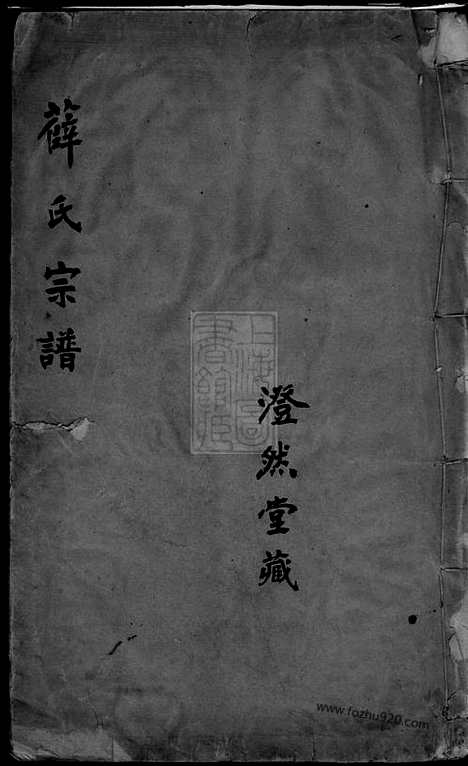 薛氏宗譜
澄然堂藏
上海圖書館藏
www.fozhu920.com